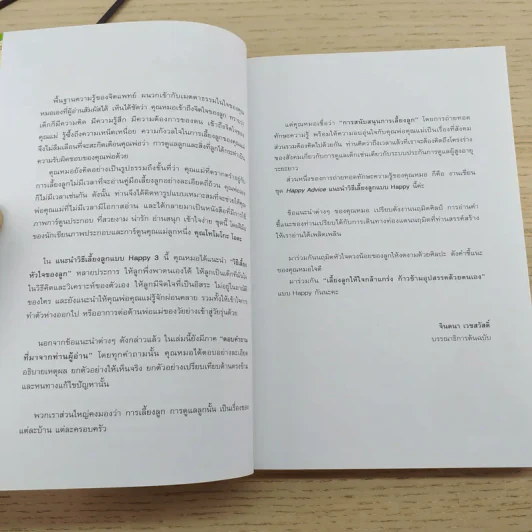 พื้นฐานความรู้ของจิตแพทย์ ผนวกเข้ากับเมตตาธรรมในใจของคุณ
หมอเองที่ผู้อ่านสัมผัสได้ เห็นได้ชัดว่า คุณหมอเข้าถึงจิตใจของลูก ทราบว่า
เด็กก็มีความคิด มีความรู้สึก มีความต้องการของตน เข้าถึงจิตใจของ
คุณแม่ รู้ซึ้งถึงความเหน็ดเหนื่อย ความกังวลใจในการเลี้ยงลูกของคุณแม่
จึงไม่ลืมเตือนที่จะสะกิดเตือนคุณพ่อว่า การดูแลและสิ่งที่ลูกได้
ความรับผิดชอบของคุณพ่อด้วย
คุณหมอยังคิดอย่างเป็นรูปธรรมถึงขั้นที่ว่า คุณแม่ที่
การเลี้ยงลูกไม่มีเวลาที่จะอ่านคู่มือเลี้ยงลูกอย่างละเอียดถี่ถ้วน
ก็ไม่มีเวลาเช่นกัน ดังนั้น ท่านจึงได้คิดหารูปแบบเหมาะสมที่จะช่วยให้
พ่อคุณแม่ที่ไม่มีเวลามีโอกาสอ่าน และได้กลายมาเป็นหนังสือที่มี
ภาพการ์ตูนประกอบ ที่สวยงาม น่ารัก อ่านสนุก เข้าใจง่าย ชุดนี้
ของนักเขียนภาพประกอบและการ์ตูนคุณแม่ลูกหนึ่ง คุณโทโมโกะ โอตะ
ใน แนะนำวิธีเลี้ยงลูกแบบ Happy 3 นี้ คุณหมอได้แนะนำ "วิธีเลี้ยง
หัวใจของลูก" หลายประการ ให้ลูกพึ่งพาตนเองได้ ให้ลูกเป็นเด็กที่มั่นใจ
ในวิธีคิดและวิเคราะห์ของตัวเอง ให้ลูกมีจิตใจที่เป็นอิสระ ไม่อยู่ในอาณัติ
ของใคร และยังแนะนำให้คุณพ่อคุณแม่รู้จักผ่อนคลาย รวมทั้งให้เข้าใจการ
ทำตัวห่างออกไป หรืออาการต่อต้านพ่อแม่ของวัยย่างเข้าสู่วัยรุ่นด้วย
นอกจากข้อแนะนำต่างๆ ดังกล่าวแล้ว ในเล่มนี้ยังมีภาค "ตอบคำถาม
ที่มาจากท่านผู้อ่าน" โดยทุกคำถามนั้น คุณหมอได้ตอบอย่างละเอียด
อธิบายเหตุผล ยกตัวอย่างให้เห็นจริง ยกตัวอย่างเปรียบเทียบด้านตรงข้าม
และหนทางแก้ไขปัญหานั้น
พวกเราส่วนใหญ่คงมองว่า การเลี้ยงลูก การดูแลลูกนั้น เป็นเรื่องของ
แต่ละบ้าน แต่ละครอบครัว
แต่คุณหมอเชื่อว่า "การสนับสนุนการเลี้ยงลูก" โดยการถ่ายทอด
ทักษะความรู้ พร้อมให้ความอบอุ่นใจกับคุณพ่อคุณแม่เป็นเรื่องที่สังคม
ส่วนรวมต้องคิดไปด้วยกัน ท่านคิดว่าถึงเวลาแล้วที่เราจะต้องคิดถึงโครงร่าง
ของสังคมเกี่ยวกับการดูแลเด็กเช่นเดียวกับระบบประกันการดูแลผู้สูงอายุ
ระยะยาว
ส่วนหนึ่งของการถ่ายทอดทักษะความรู้ของคุณหมอ ก็คือ งานเขียน
ชุด Happy Advice แนะนำวิธีเลี้ยงลูกแบบ Happy นี้ค่ะ
ข้อแนะนำต่างๆ ของคุณหมอ เปรียบดังงานถนิมศิลป์ การอ่านคำ
ชี้แนะของท่านเปรียบได้กับการเดินทางท่องแดนถนิมิตที่ท่านสรรค์สร้าง
ให้เราอ่านได้เพลิดเพลิน
มาร่วมกันถนิมหัวใจดวงน้อยของลูกให้งดงามด้วยศิลปะ ดังคำชี้แนะ
ของคุณหมอใจดี
มาร่วมกัน "เลี้ยงลูกให้ใจกล้าแกร่ง ก้าวข้ามอุปสรรคด้วยตนเอง"
แบบ Happy กันนะคะ
จินตนา เวชสวัสดิ์
บรรณาธิการต้นฉบับ